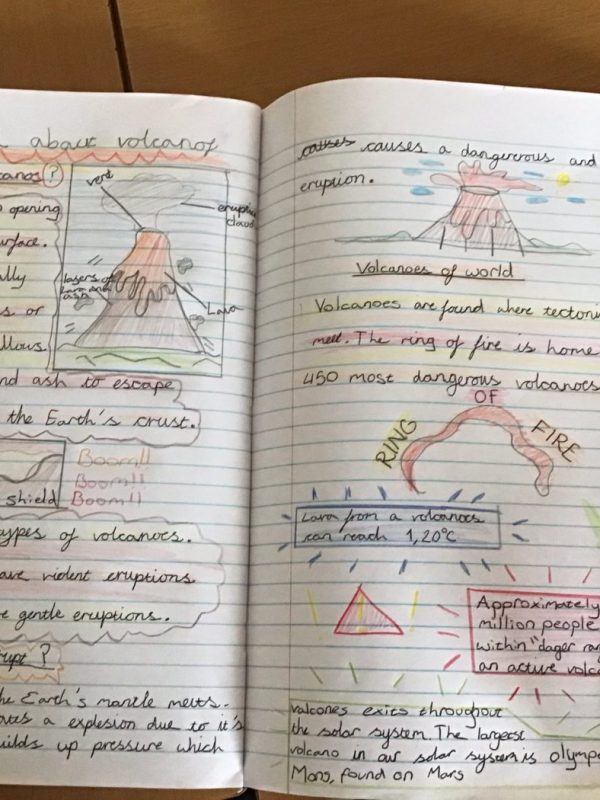 about volcanoes
canos?
opening
vent
eruption
cloud
surface.
layers of
lava and
ash
Lava
s or
llows
nd ash to escape
the Earth's crust.
Boom!!
Boom!!
Boom!!
shield
types of volcanoes.
ave violent eruptions
e gentle eruptions.
rupt?
he Earth's mantle melts.
ates a explesion due to it's
uilds up pressure which
causes causes a dangererous and
eruption.
Volcanoes of world
Volcanoes are found where tectoni
meet. The ring of fire is home
450 most dangerous volcanoes
RING OF FIRE
Lava from a volcanoes
can reach 1,20°C
Approximately
million people
within "dager ra
an active volca
valcones exits throughout
the solar system. The largest
volcano in our solar system is olympe
Mons, found on Mars